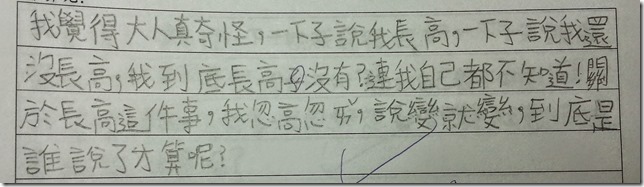 我覺得大人真奇怪,一下子說我長高,一下子說我還
沒長高,我到底長高了沒有?連我自己都不知道!關
於長高這件事,我忽高忽ㄞˇ,說變就變,到底是
誰說了才算呢?